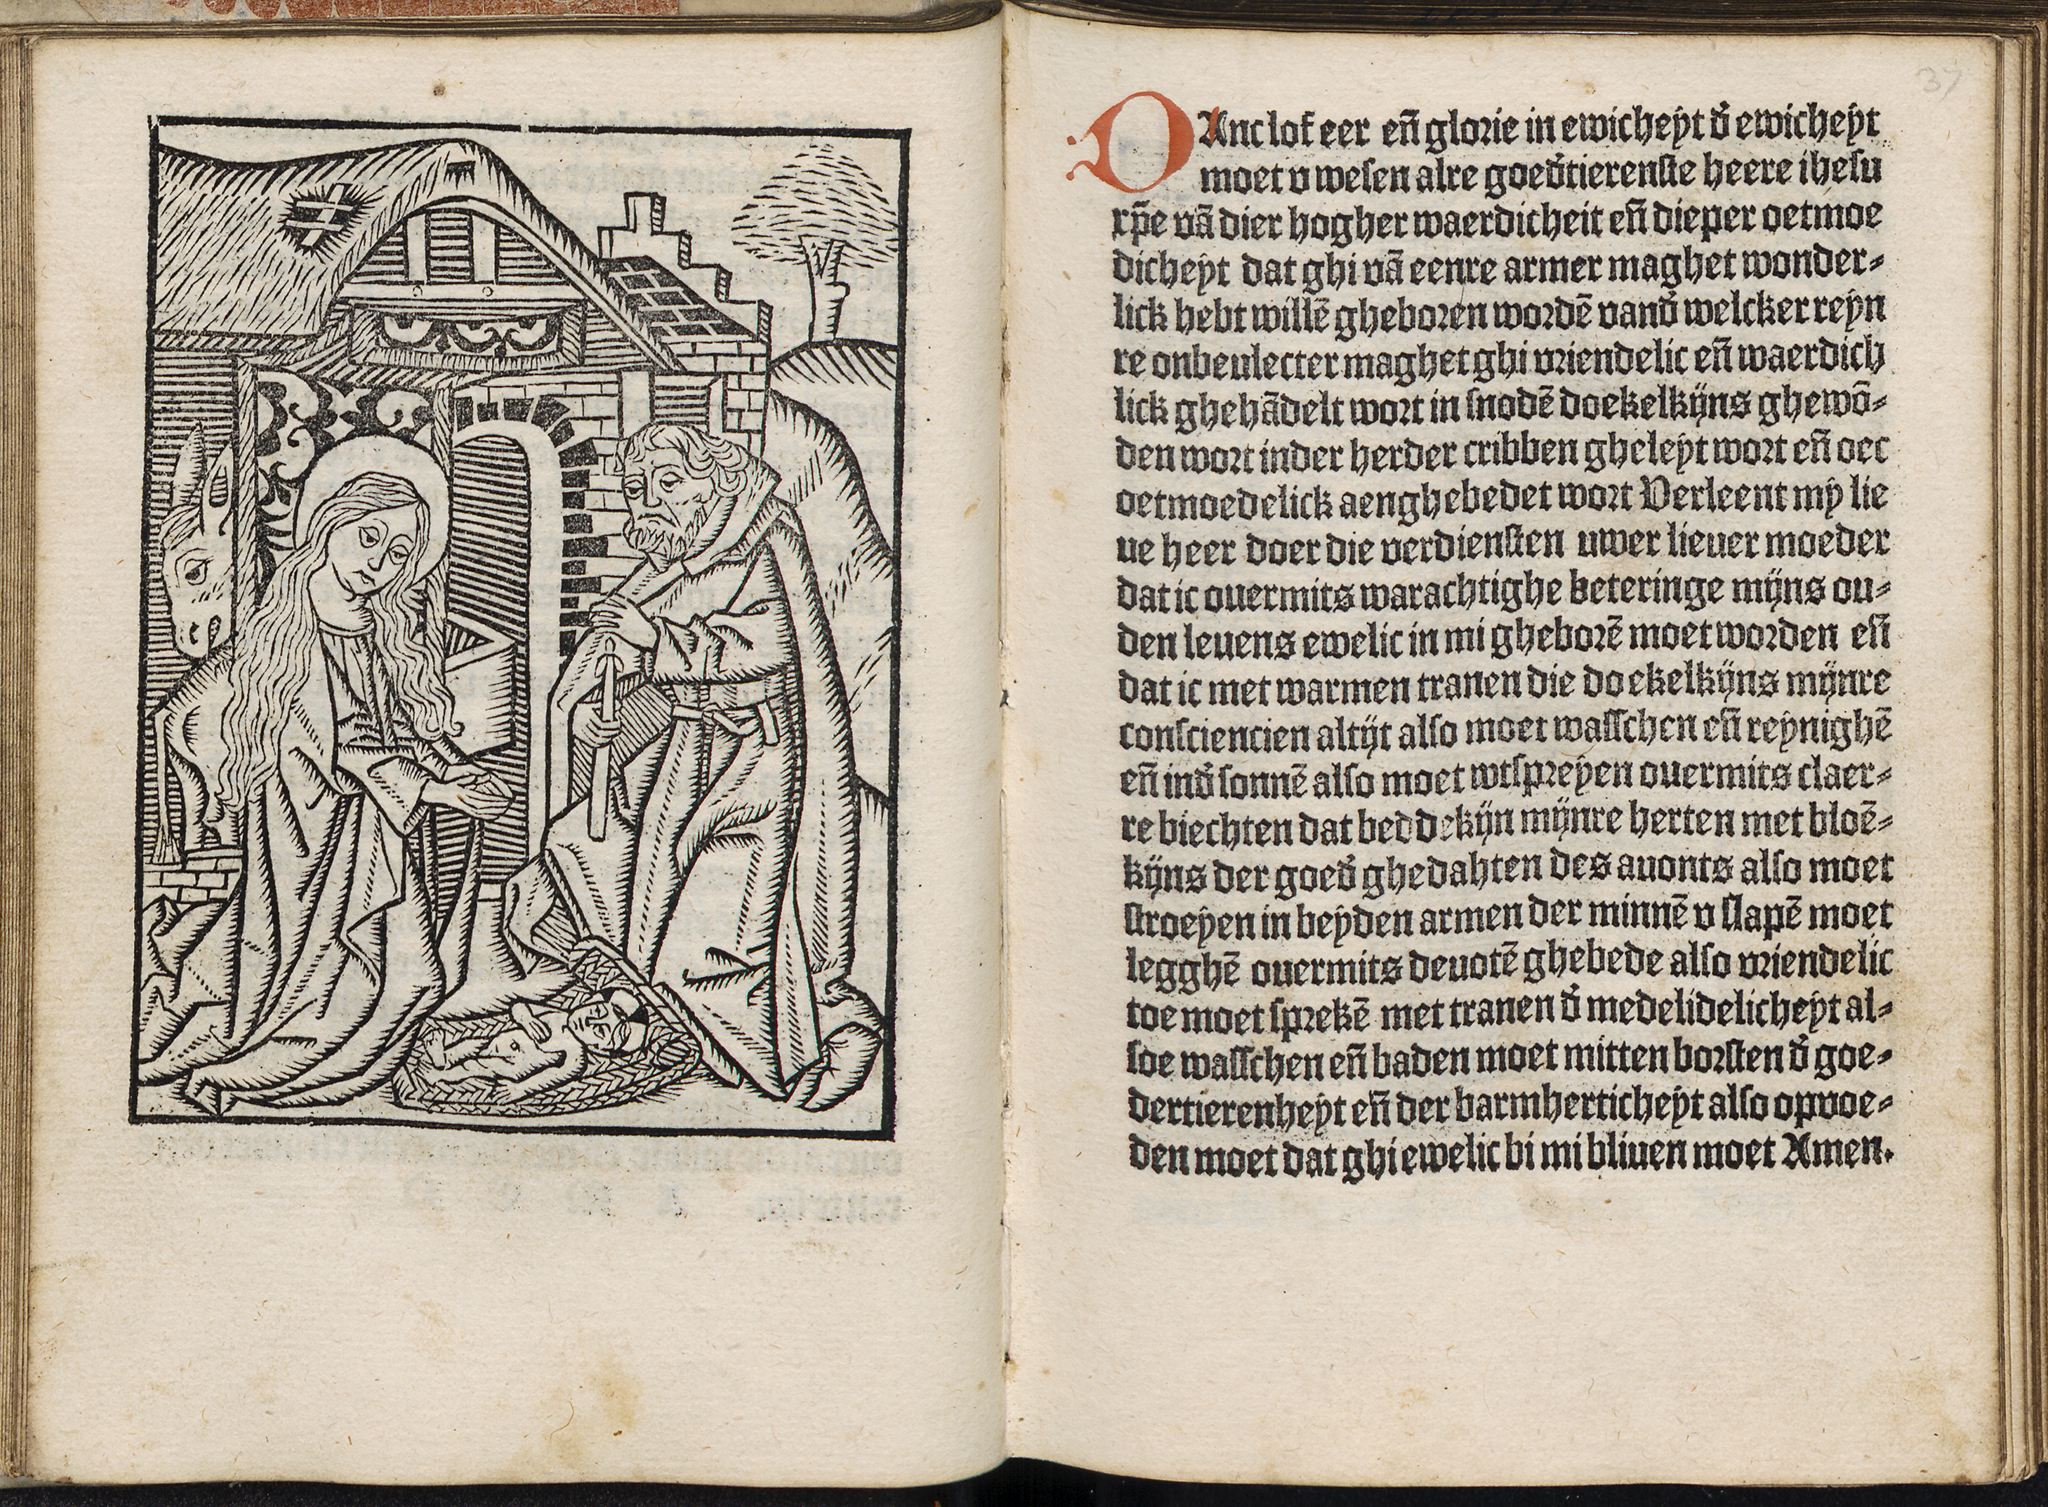 37
DAnc lof eer eñ glorie in ewicheyt d̕ ewicheyt
moet v wesen alre goed̕tierenste heere ihesu
xp̄e vā dier hogher waerdicheit eñ dieper oetmoe
dicheyt dat ghi vā eenre armer maghet wonder⸗
lick hebt willē gheboren wordē vand̕ welcker reyn
re onbeulecter maghet ghi vriendelic eñ waerdich
lick ghehādelt wort in snodē doekelkijns ghewō⸗
den wort inder herder cribben gheleyt wort eñ oec
oetmoedelick aenghebedet wort Verleent my lie
ue heer doer die verdiensten uwer lieuer moeder
dat ic ouermits warachtighe beteringe mijns ou⸗
den leuens ewelic in mi gheborē moet worden eñ
dat ic met warmen tranen die doekelkijns mijnre
consciencien altijt also moet wasschen eñ reynighē
eñ ind̕ sonnē also moet wtspreyen ouermits claer⸗
re biechten dat beddekijn mijnre herten met bloē⸗
kijns der goed̕ ghedahten des auonts also moet
stroeyen in beyden armen der minnē v slapē moet
legghē ouermits deuotē ghebede also vriendelic
toe moet sprekē met tranen d̕ medelidelicheyt al⸗
soe wasschen eñ baden moet mitten borsten d̕ goe⸗
dertierenheyt eñ der barmherticheyt also opvoe⸗
den moet dat ghi ewelic bi mi bliuen moet Amen.